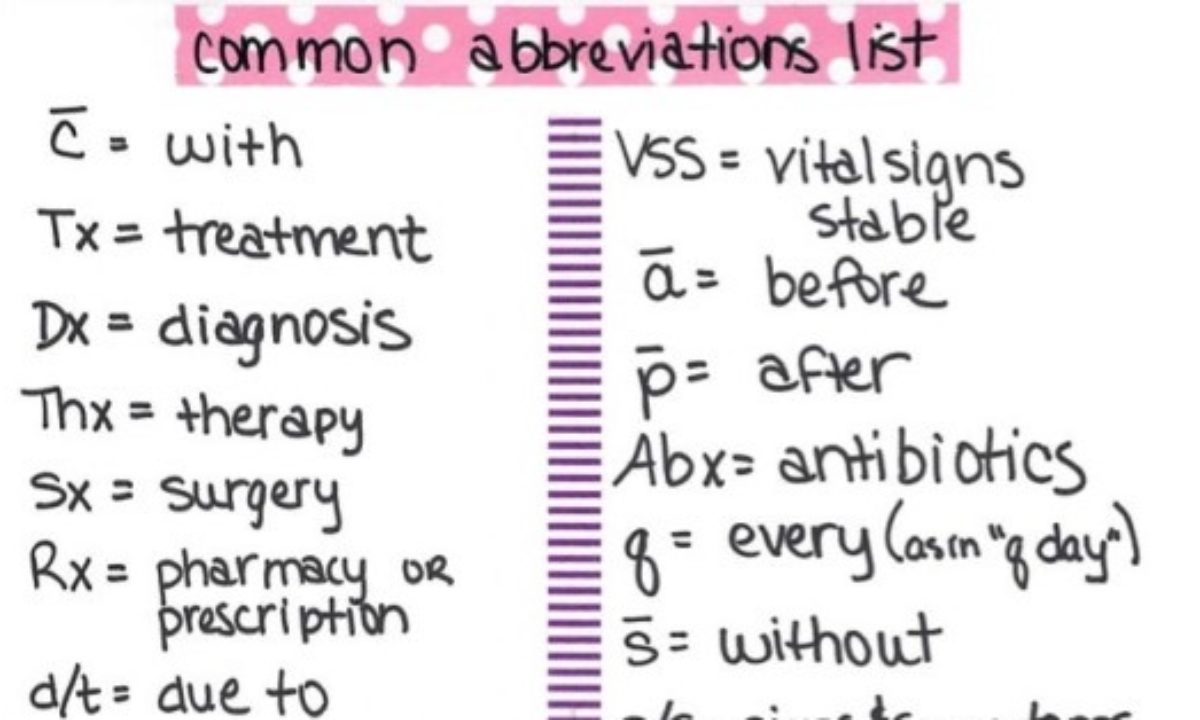 common abbreviations list
c̄ = with
Tx = treatment
Dx = diagnosis
Thx = therapy
Sx = surgery
Rx = pharmacy OR
prescription
d/t = due to
VSS = vital signs
stable
ā = before
p̄ = after
Abx = antibiotics
q = every (as in "q day")
s̄ = without